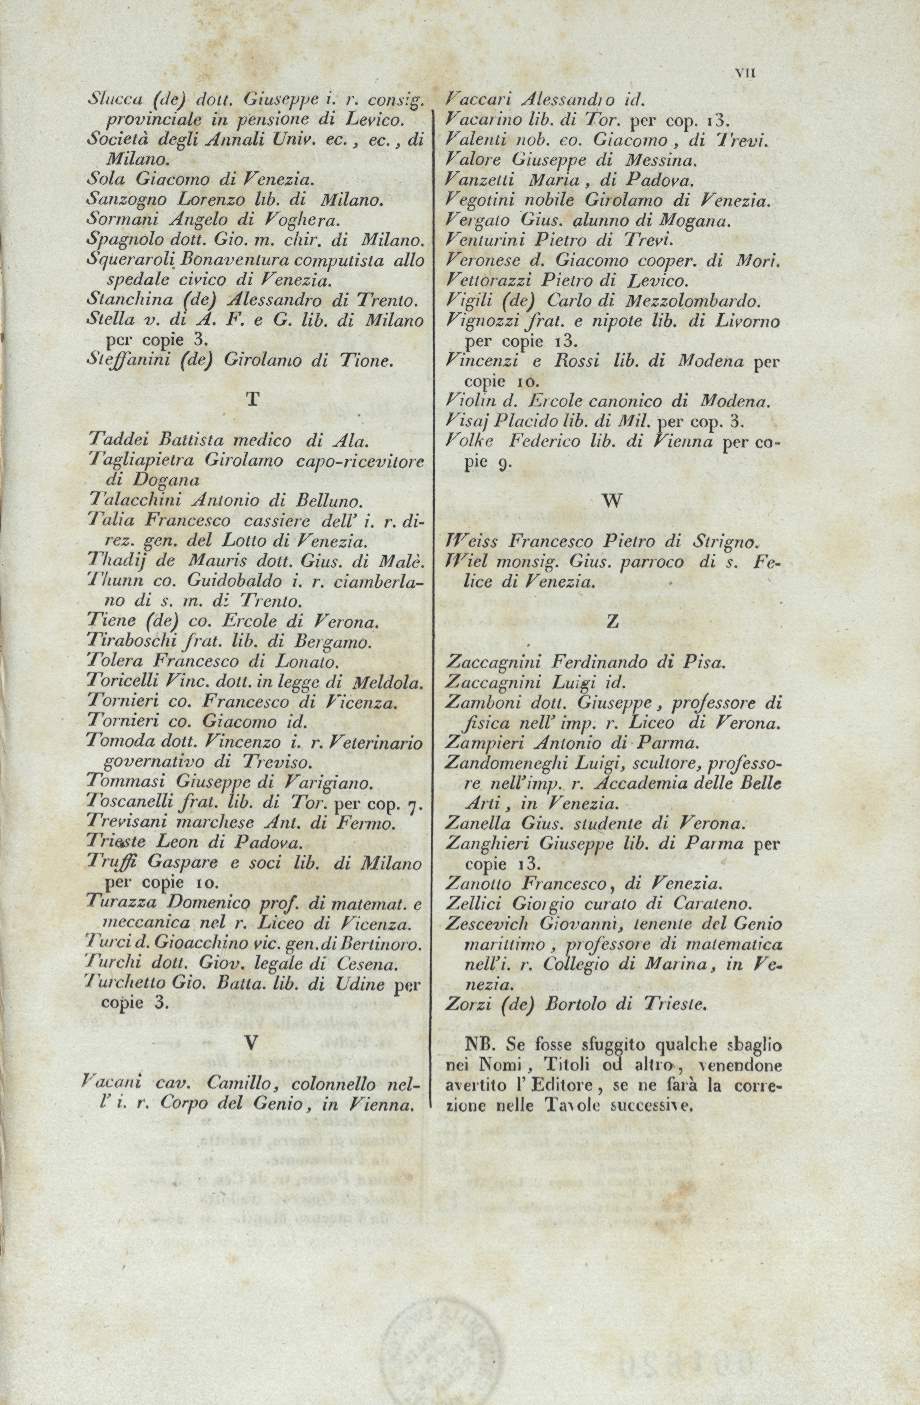 VII
Slucca (de) dott. Giuseppe i. r. consig.
provinciale in pensione di Levico.
Società degli Annali Univ. ec., ec., di
Milano.
Sola Giacomo di Venezia.
Sanzogno Lorenzo lib. di Milano.
Sormani Angelo di Voghera.
Spagnolo dott. Gio. m. chir. di Milano.
Squeraroli Bonaventura computista allo
spedale civico di Venezia.
Stanchina (de) Alessandro di Trento.
Stella v. di A. F. e G. lib. di Milano
per copie 3.
Steffanini (de) Girolamo di Tione.
T
Taddei Battista medico di Ala.
Tagliapietra Girolamo capo-ricevitore
di Dogana
Talacchini Antonio di Belluno.
Talia Francesco cassiere dell' i. r. di-
rez. gen. del Lotto di Venezia.
Thadij de Mauris dott. Gius. di Malè.
Thunn co. Guidobaldo i. r. ciamberla-
no di s. m. di Trento.
Tiene (de) co. Ercole di Verona.
Tiraboschi frat. lib. di Bergamo.
Tolera Francesco di Lonato.
Toricelli Vinc. dott. in legge di Meldola.
Tornieri co. Francesco di Vicenza.
Tornieri co. Giacomo id.
Tomoda dott. Vincenzo i. r. Veterinario
governativo di Treviso.
Tommasi Giuseppe di Varigiano.
Toscanelli frat. lib. di Tor. per cop. 7.
Trevisani marchese Ant. di Fermo.
Trieste Leon di Padova.
Truffi Gaspare e soci lib. di Milano
per copie 10.
Turazza Domenico prof. di matemat. e
meccanica nel r. Liceo di Vicenza.
Turci d. Gioacchino vic. gen. di Bertinoro.
Turchi dott. Giov. legale di Cesena.
Turchetto Gio. Batta. lib. di Udine per
copie 3.
V
Vacani cav. Camillo, colonnello nel-
l' i. r. Corpo del Genio, in Vienna.
Vaccari Alessandro id.
Vacarino lib. di Tor. per cop. 13.
Valenti nob. co. Giacomo, di Trevi.
Valore Giuseppe di Messina.
Vanzetti Maria, di Padova.
Vegotini nobile Girolamo di Venezia.
Vergato Gius. alunno di Mogana.
Venturini Pietro di Trevi.
Veronese d. Giacomo cooper. di Mori.
Vettorazzi Pietro di Levico.
Vigili (de) Carlo di Mezzolombardo.
Vignozzi frat. e nipote lib. di Livorno
per copie 13.
Vincenzi e Rossi lib. di Modena per
copie 10.
Violin d. Ercole canonico di Modena.
Visaj Placido lib. di Mil. per cop. 3.
Volke Federico lib. di Vienna per co-
pie 9.
W
Weiss Francesco Pietro di Strigno.
Wiel monsig. Gius. parroco di s. Fe-
lice di Venezia.
Z
Zaccagnini Ferdinando di Pisa.
Zaccagnini Luigi id.
Zamboni dott. Giuseppe, professore di
fisica nell' imp. r. Liceo di Verona.
Zampieri Antonio di Parma.
Zandomeneghi Luigi, scultore, professo-
re nell'imp. r. Accademia delle Belle
Arti, in Venezia.
Zanella Gius. studente di Verona.
Zanghieri Giuseppe lib. di Parma per
copie 13.
Zanotto Francesco, di Venezia.
Zellici Giorgio curato di Carateno.
Zescevich Giovanni, tenente del Genio
marittimo, professore di matematica
nell'i. r. Collegio di Marina, in Ve-
nezia.
Zorzi (de) Bortolo di Trieste.
NB. Se fosse sfuggito qualche sbaglio
nei Nomi, Titoli od altro, venendone
avertito l' Editore, se ne farà la corre-
zione nelle Tavole successive.